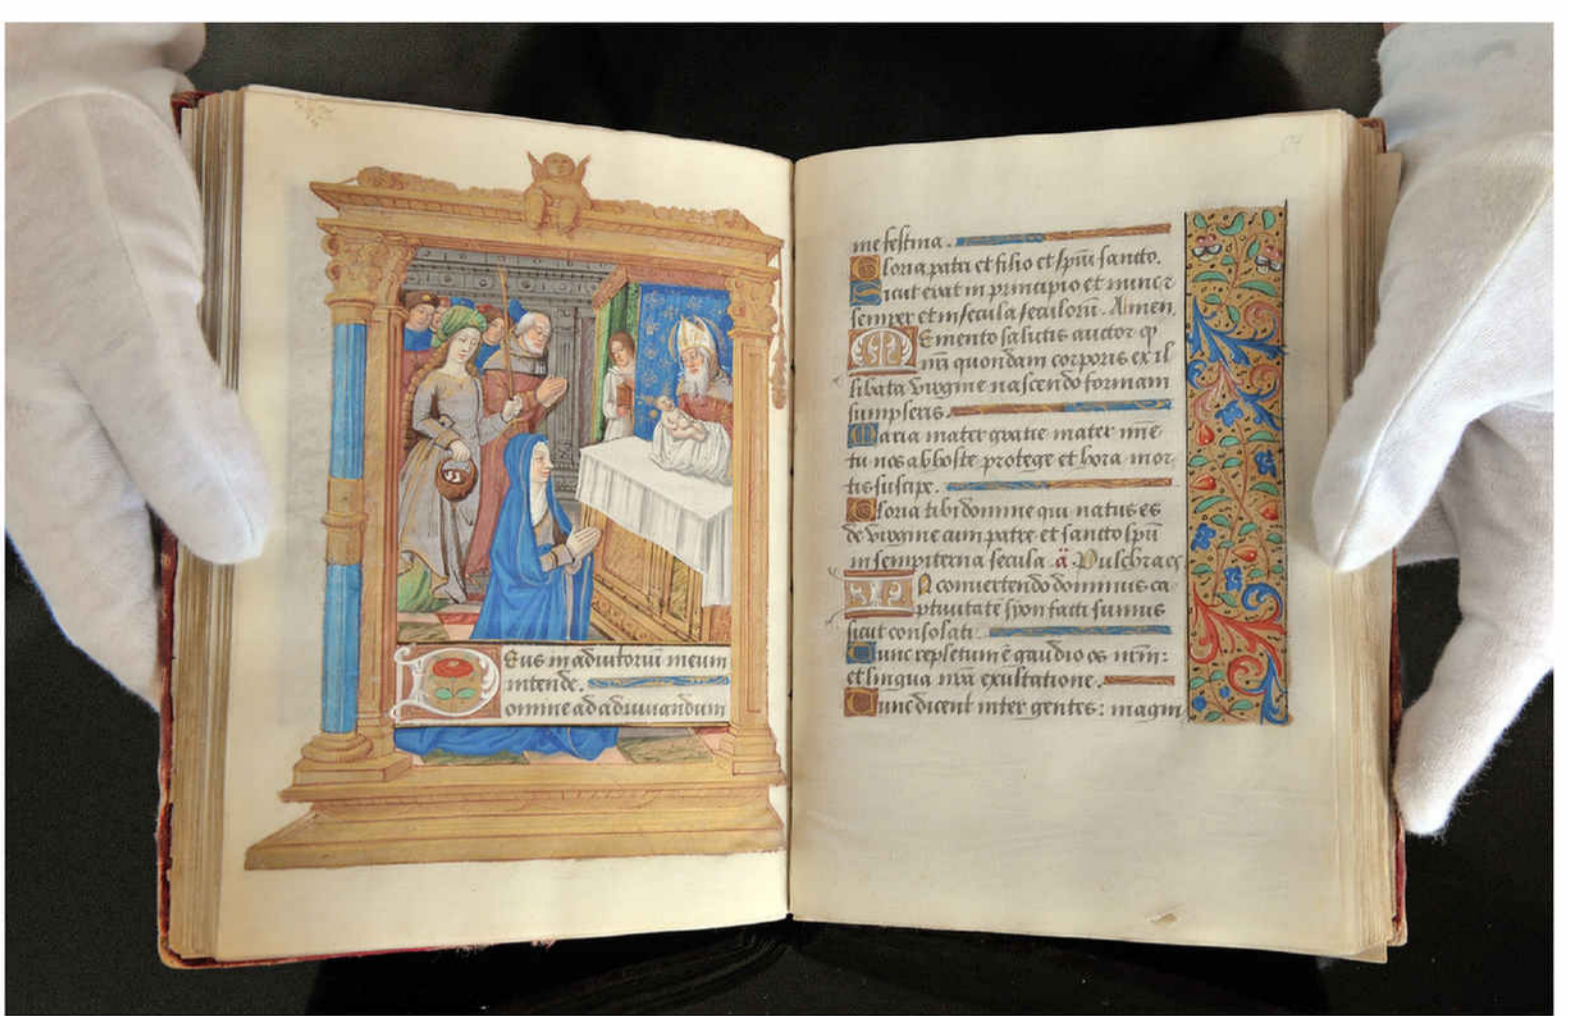 Deus in adiutoriũ meum
intende.
Domine ad adiuuandum
me festina.
Gloria patri et filio et spũi sancto.
Sicut erat in principio et nunc z
semper et in secula seculorũ. Amen.
Memento salutis auctor q
nr̃i quondam corporis ex il
libata virgine nascendo formam
sumpseris.
Maria mater gratie mater mie
tu nos ab hoste protege et hora mor
tis suscipe.
Gloria tibi domine qui natus es
de virgine cum patre et sancto spũ
in sempiterna secula. ã. Pulchra es
In conuertendo dominus ca
ptiuitatẽ syon facti sumus
sicut consolati.
Tunc repletum ẽ gaudio os nrm̃:
et lingua nr̃a exultatione.
Tunc dicent inter gentes: magni